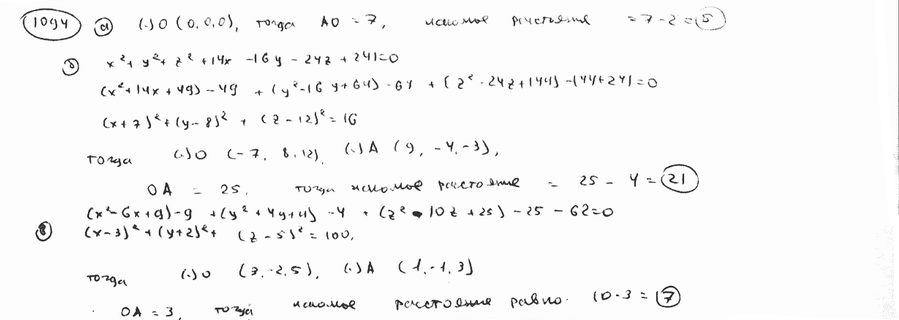 1094 а) (.) O (0,0,0), тогда AO = 7, искомое расстояние = 7 - 2 = 5
б) x² + y² + z² + 14x - 16y - 24z + 241 = 0
(x² + 14x + 49) - 49 + (y² - 16y + 64) - 64 + (z² - 24z + 144) - 144 + 241 = 0
(x + 7)² + (y - 8)² + (z - 12)² = 16
тогда (.) O (-7, 8, 12), (.) A (9, -4, -3),
OA = 25, тогда искомое расстояние = 25 - 4 = 21
(x² - 6x + 9) - 9 + (y² + 4y + 4) - 4 + (z² - 10z + 25) - 25 - 62 = 0
в) (x - 3)² + (y + 2)² + (z - 5)² = 100,
тогда (.) O (3, -2, 5), (.) A (1, -1, 3)
OA = 3, тогда искомое расстояние равно 10 - 3 = 7